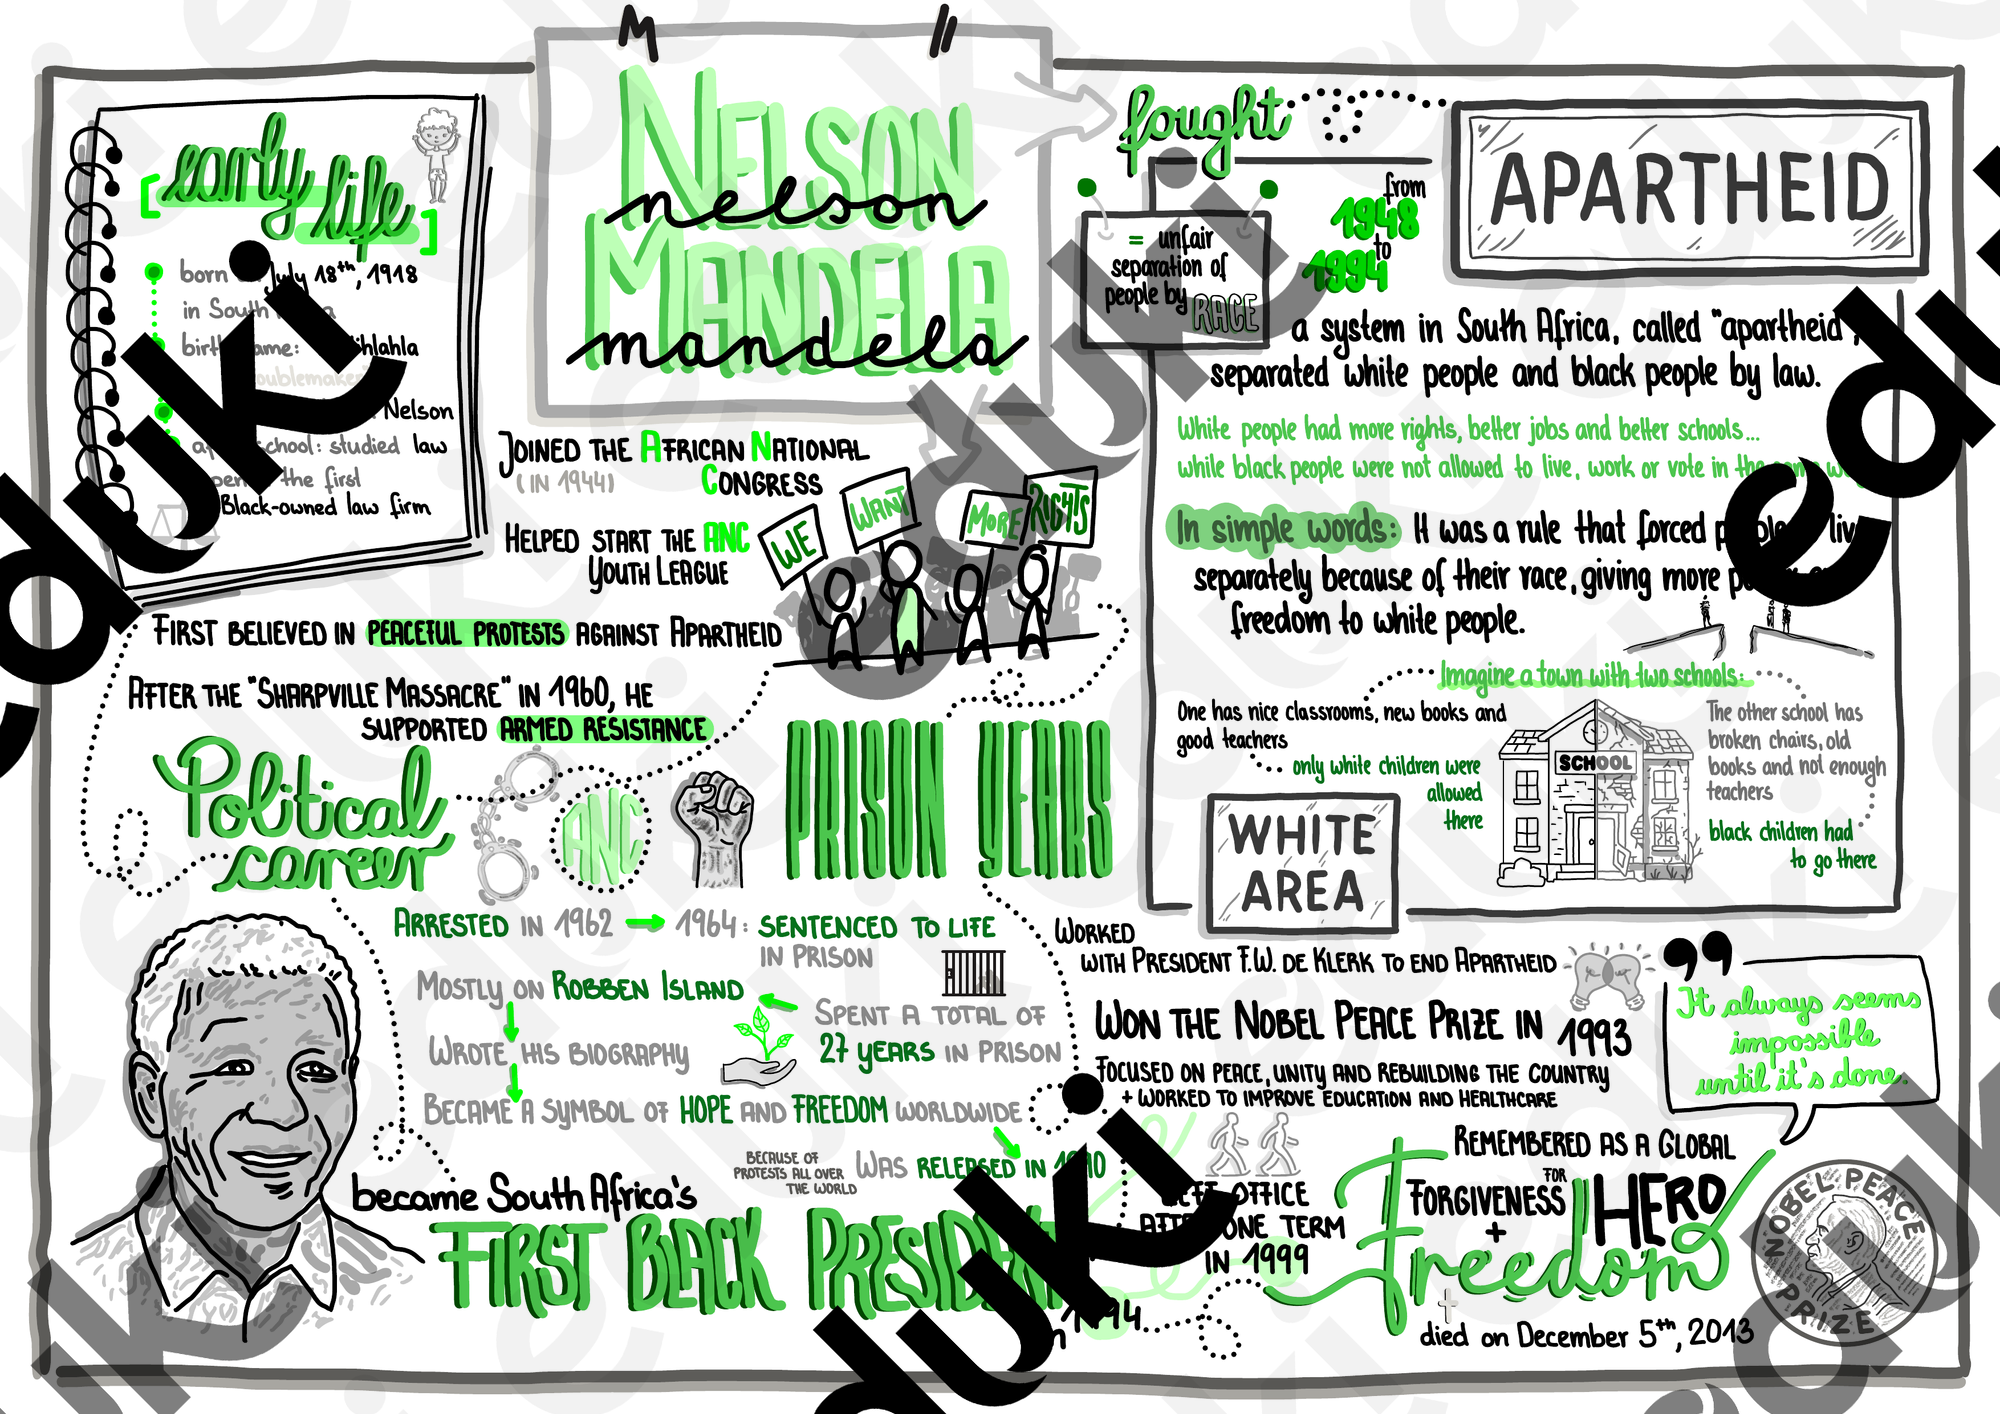 NELSON
nelson
MANDELA
mandela
[early life]
born July 18th, 1918
in South
Nelson
school: studied law
the first
Black-owned law firm
JOINED THE AFRICAN NATIONAL
(IN 1944) CONGRESS
HELPED START THE ANC
YOUTH LEAGUE
WE WANT MORE RIGHTS
FIRST BELIEVED IN PEACEFUL PROTESTS AGAINST APARTHEID
AFTER THE "SHARPVILLE MASSACRE" IN 1960, HE
SUPPORTED ARMED RESISTANCE
Political
career
ANC
PRISON YEARS
ARRESTED IN 1962 → 1964: SENTENCED TO LIFE
IN PRISON
MOSTLY ON ROBBEN ISLAND
SPENT A TOTAL OF
27 YEARS IN PRISON
WROTE HIS BIOGRAPHY
BECAME A SYMBOL OF HOPE AND FREEDOM WORLDWIDE
BECAUSE OF
PROTESTS ALL OVER
THE WORLD
WAS RELEASED IN 1990
became South Africa's
FIRST BLACK PRESIDENT
1994
fought
APARTHEID
from
1948
to
1994
= unfair
separation of
people by RACE
a system in South Africa, called "apartheid",
separated white people and black people by law.
White people had more rights, better jobs and better schools...
while black people were not allowed to live, work or vote in the same
In simple words: It was a rule that forced people live
separately because of their race, giving more
freedom to white people.
Imagine a town with two schools:
One has nice classrooms, new books and
good teachers
only white children were
allowed
there
SCHOOL
The other school has
broken chairs, old
books and not enough
teachers
black children had
to go there
WHITE
AREA
WORKED
WITH PRESIDENT F.W. DE KLERK TO END APARTHEID
WON THE NOBEL PEACE PRIZE IN 1993
FOCUSED ON PEACE, UNITY AND REBUILDING THE COUNTRY
+ WORKED TO IMPROVE EDUCATION AND HEALTHCARE
LEFT OFFICE
AFTER ONE TERM
IN 1999
It always seems
impossible
until it's done.
REMEMBERED AS A GLOBAL
HERO
FOR
FORGIVENESS
+
Freedom
died on December 5th, 2013
NOBEL PEACE
PRIZE
eduki
eduki
eduki
eduki